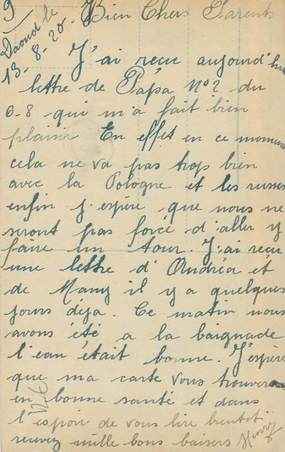 9
Daoud le
13-8-20
Bien Chers Parents
J'ai recu aujourd'hui
lettre de Papa N°2 du
6-8 qui m'a fait bien
plaisir En effet en ce moment
cela ne va pas trop bien
avec la Pologne et les russes
enfin j'espère que nous ne
seront pas forcé d'aller y
faire un tour. J'ai recu
une lettre d'Andréa et
de Mamy il y a quelques
jours déja. Ce matin nous
avons été a la baignade
l'eau était bonne. J'espère
que ma carte vous trouvera
en bonne santé et dans
l'espoir de vous lire bientot
recevez mille bons baisers